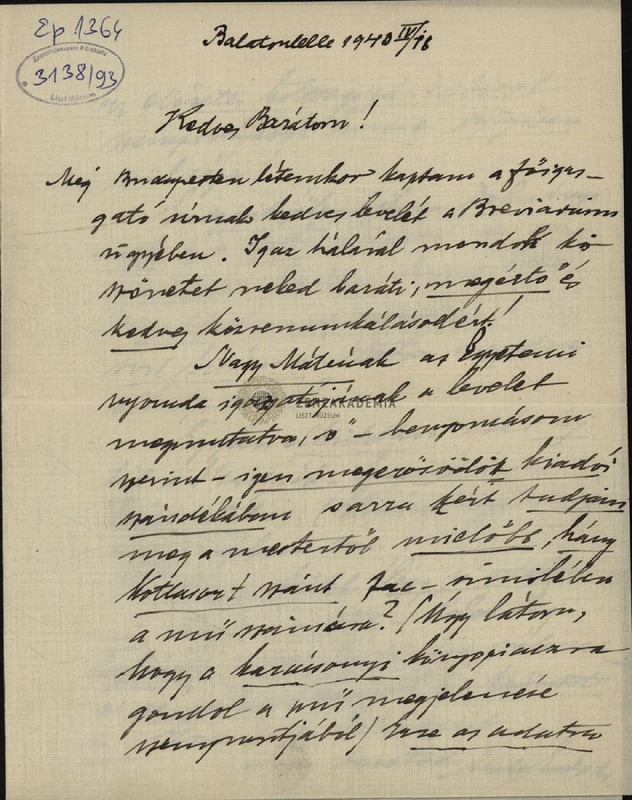 Ep 1364
Zeneművészeti Főiskola
3138/93
Liszt Múzeum
Balatonlelle 1943 IV/18
Kedves Barátom!
Még Budapesten létemkor kaptam a főigaz-
gató úrnak kedves levelét a Breviárium
ügyében. Igaz hálával mondok kö-
szönetet neked baráti, megértő és
kedves közremunkálásodért!
Nagy Máténak az Egyetemi
nyomda igazgatójának a levelet
megmutatva, ő - benyomásom
szerint - igen megerősödött kiadói
szándékában s arra kért tudjam
meg a mestertől mielőbb, hány
kottasort szánt fac-similében
a mű számára? (Úgy látom,
hogy a karácsonyi könyvpiacra
gondol a mű megjelenése
szempontjából) Erre az adatra
ZENEAKADÉMIA
LISZT MÚZEUM